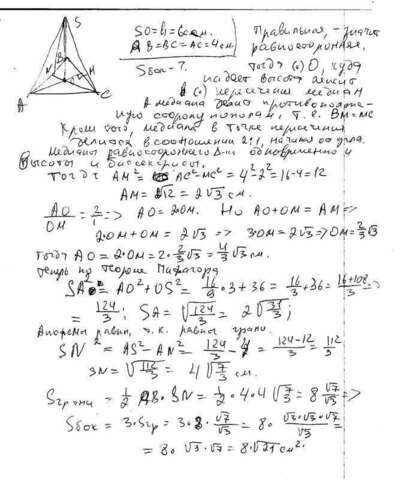 S
SO=h=6см.
AB=BC=AC=4см.
Sбок-?
Правильная, - значит
равносторонняя.
Тогда (.) O, куда
падает высота
(.) пересечения медиан
А медиана делит противополож-
ную сторону пополам, т.е. BM=MC
Кроме того, медиана в точке пересечения
делится в соотношении 2:1, начиная от угла.
Медианы равностороннего Δ-ка обновременно и
Высоты и биссектрисы.
Тогда AM²= AC²-MC²=4²-2²=16-4=12
AM=√12=2√3 см.
AO/OM=2/1=> AO=2·OM. Но AO+OM=AM=>
2·OM+OM=2√3 => 3·OM=2√3=>OM=2/3√3
Тогда AO=2·OM=2·2/3√3=4/3√3см.
Теперь по теореме Пифагора
SA²=AO²+OS²=16/9·3+36=16/3+36=(16+108)/3=>
=124/3; SA=√(124/3)=2√(31/3);
Апофемы равны, т.к. равны грани.
SN²=AS²-AN²=124/3-4=(124-12)/3=112/3
SN=√(112/3)=4√(7/3) см.
Sграни=1/2 AB·SN=1/2·4·4√(7/3)=8√7/√3=>
Sбок=3·Sгр=3·8·√7/√3=8·(√3·√3·√7)/√3=
=8·√3·√7=8·√21 см².
A
C
B
N
M